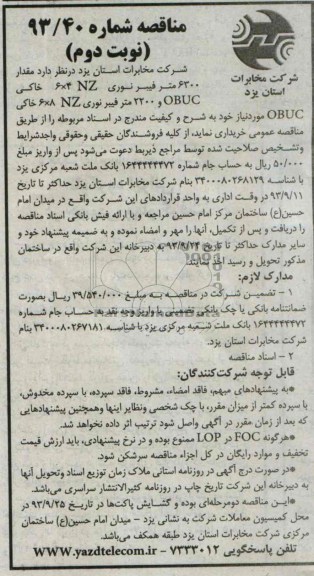 مناقصه شماره ۹۳/۴۰
(نوبت دوم)
شرکت مخابرات
استان یزد
شرکت مخابرات استان یزد درنظر دارد مقدار
۶۳۰۰ متر فیبر نوری NZ ۶x۴ خاکی
OBUC و ۲۲۰۰ متر فیبر نوری NZ ۶x۸ خاکی
OBUC موردنیاز خود به شرح و کیفیت مندرج در اسناد مربوطه را از طریق
مناقصه عمومی خریداری نماید، از کلیه فروشندگان حقیقی وحقوقی واجدشرایط
وتشخیص صلاحیت شده توسط مراجع ذیربط دعوت می‌شود پس از واریز مبلغ
۵۰/۰۰۰ ریال به حساب جام شماره ۱۶۴۴۴۴۴۴۷۲ بانک ملت شعبه مرکزی یزد
با شناسه ۳۴۰۰۰۸۰۲۶۸۱۲۹ بنام شرکت مخابرات استان یزد حداکثر تا تاریخ
۹۳/۹/۱۱ در وقت اداری به واحد قراردادهای این شرکت واقع در میدان امام
حسین(ع) ساختمان مرکز امام حسین مراجعه و با ارائه فیش بانکی اسناد مناقصه
را دریافت و پس از تکمیل، آنها را مهر و امضاء نموده و به ضمیمه پیشنهاد خود و
سایر مدارک حداکثر تا تاریخ ۹۳/۹/۲۴ به دبیرخانه این شرکت واقع در ساختمان
مذکور تحویل و رسید اخذ نمایند.
مدارک لازم:
۱ - تضمین شرکت در مناقصه به مبلغ ۳۹/۵۴۰/۰۰۰ ریال بصورت
ضمانتنامه بانکی یا چک بانکی تضمینی یا واریز وجه نقد به حساب جام شماره
۱۶۴۴۴۴۴۴۷۲ بانک ملت شعبه مرکزی یزد با شناسه ۳۴۰۰۰۸۰۲۶۷۱۸۱ بنام
شرکت مخابرات استان یزد.
۲ - اسناد مناقصه
قابل توجه شرکت‌کنندگان:
*به پیشنهادهای مبهم، فاقد امضاء، مشروط، فاقد سپرده، با سپرده مخدوش،
با سپرده کمتر از میزان مقرر، با چک شخصی ونظایر اینها وهمچنین پیشنهادهایی
که بعد از زمان مقرر در آگهی واصل شود ترتیب اثر داده نخواهد شد.
*هرگونه FOC در LOP ممنوع بوده و در نرخ پیشنهادی، باید ارزش قیمت
تخفیف و موارد رایگان در کل اجزاء مناقصه سرشکن شود.
*در صورت درج آگهی در روزنامه استانی ملاک زمان توزیع اسناد وتحویل آنها
به دبیرخانه این شرکت تاریخ چاپ در روزنامه کثیرالانتشار سراسری می‌باشد.
*این مناقصه دومرحله‌ای بوده و گشایش پاکت‌ها در تاریخ ۹۳/۹/۲۵ در
محل کمیسیون معاملات شرکت به نشانی یزد - میدان امام حسین(ع) ساختمان
مرکزی شرکت مخابرات استان یزد طبقه همکف می‌باشد.
تلفن پاسخگویی ۷۲۳۳۰۱۲ - WWW.yazdtelecom.ir